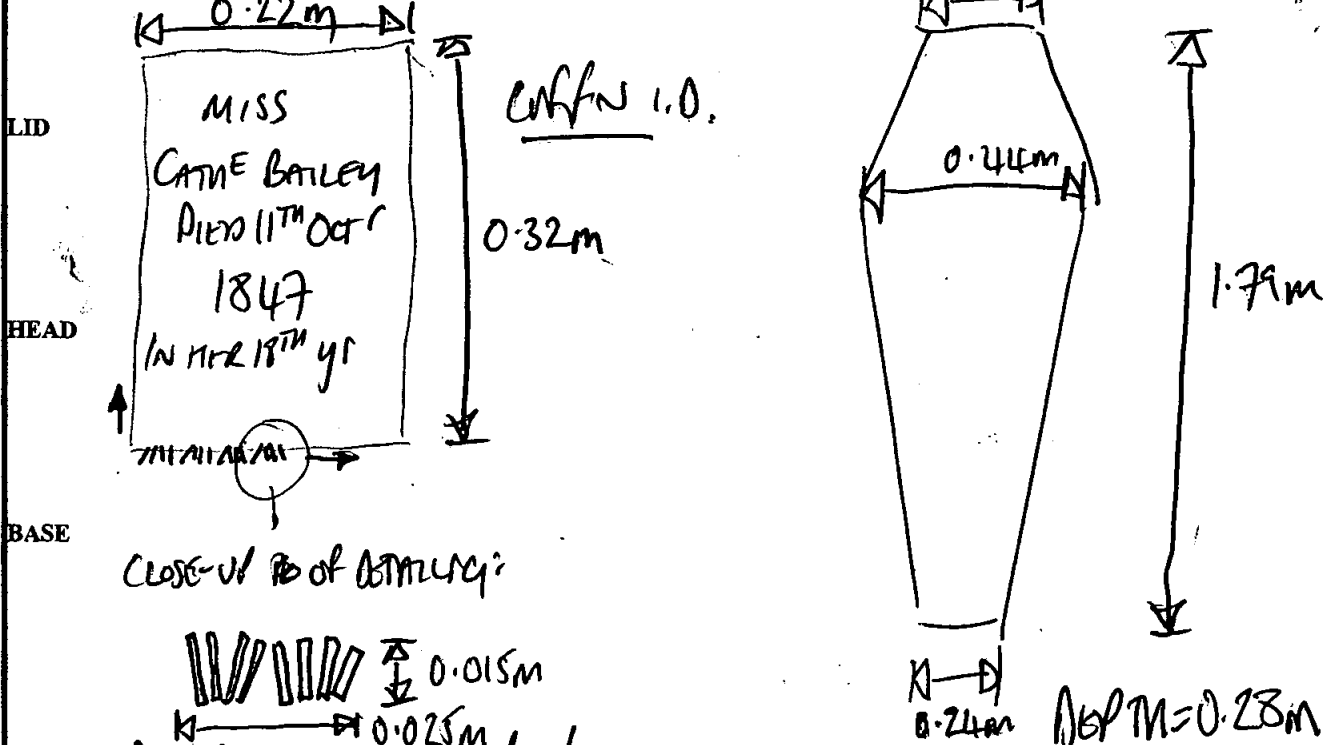 0.22m
LID
HEAD
BASE
MISS
CATHE BAILEY
DIED 11TH OCTr
1847
IN HER 18TH yr
COFFIN I.D.
0.32m
CLOSE-UP OF DETAILING:
0.015M
0.025M
0.44m
1.79m
0.24m
DEPTH=0.28m